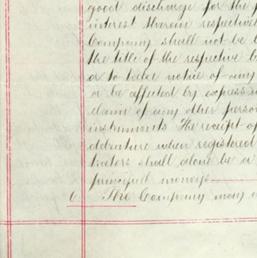 good discharge for the p
interest therein respective
Company shall not be b
the title of the respective b
or to take notice of any
or be affected by express n
claim of any other perso
instruments the receipt of
debenture when registered
trators shall alone be a
principal moneys
6 The Company may a